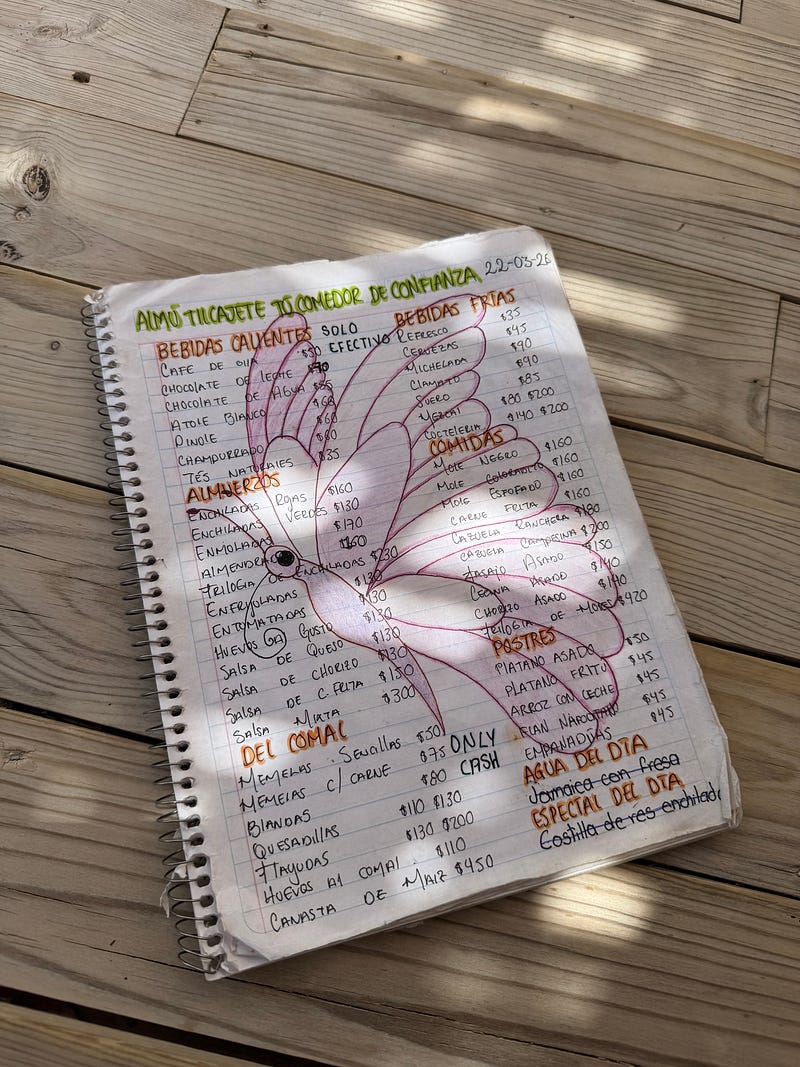 ALMÚ TILCAJETE TÚ COMEDOR DE CONFIANZA 22-03-26
BEBIDAS CALIENTES
SOLO
EFECTIVO
CAFE DE OLLA $50
CHOCOLATE DE LECHE $70
CHOCOLATE DE AGUA $55
ATOLE BLANCO $60
PINOLE $60
CHAMPURRADO $60
TÉS NATURALES $35
ALMUERZOS
ENCHILADAS ROJAS $160
ENCHILADAS VERDES $130
ENMOLADAS $170
ALMENDRADO $160
TRILOGIA DE ENCHILADAS $230
ENFRIJOLADAS $130
ENTOMATADAS $130
HUEVOS AL GUSTO $130
SALSA DE QUESO $130
SALSA DE CHORIZO $130
SALSA DE C. FRITA $150
SALSA MIXTA $300
DEL COMAL
MEMELAS SENCILLAS $50
MEMELAS C/ CARNE $75
BLANDAS $80
QUESADILLAS $110 $130
TLAYUDAS $130 $200
HUEVOS AL COMAL $110
CANASTA DE MAIZ $450
ONLY
CASH
BEBIDAS FRÍAS
REFRESCO $35
CERVEZAS $45
MICHELADA $90
CLAMATO $90
SUERO $85
MEZCAL $80 $200
COCTELERIA $140 $200
COMIDAS
MOLE NEGRO $160
MOLE COLORADITO $160
MOLE ESTOFADO $160
CARNE FRITA $160
CAZUELA RANCHERA $180
CAZUELA CAMPESINA $200
TASAJO ASADO $150
CECINA ASADO $140
CHORIZO ASADO $140
TRILOGIA DE MOLES $420
POSTRES
PLATANO ASADO $50
PLATANO FRITO $45
ARROZ CON LECHE $45
FLAN NAPOLITANO $45
EMPANADITAS $45
AGUA DEL DÍA
Jamaica con fresa
ESPECIAL DEL DÍA
Costilla de res enchilada